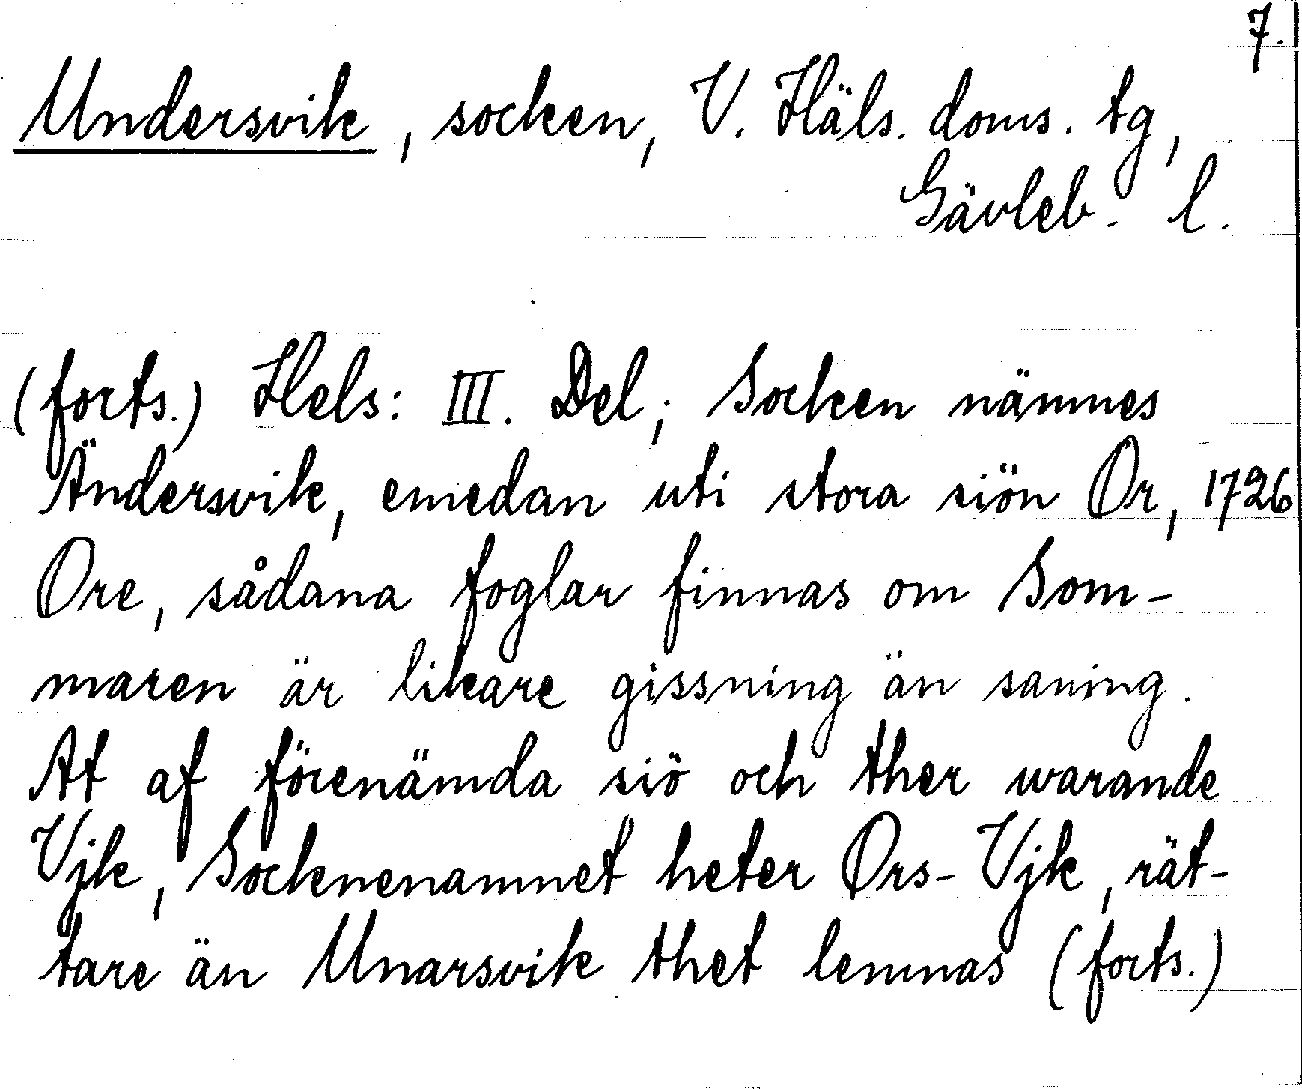 7.
Undersvik, socken, V. Häls. doms. tg,
Gävleb. l.
(forts.) Hels: III. Del; Socken nämnes
Ändersvik, emedan uti stora siön Or, 1726
Ore, sådana foglar finnas om Som-
maren är likare gissning än saning.
At af förenämda siö och ther warande
Vjk, Socknenamnet heter Ors-Vjk, rät-
tare än Unarsvik thet lemnas (forts.)